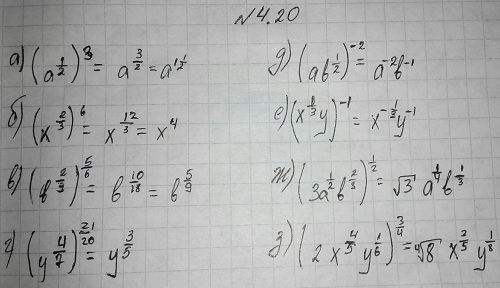 №4.20
а) (a^{1/2})^3 = a^{3/2} = a^{1 1/2}
б) (x^{2/3})^6 = x^{12/3} = x^4
в) (b^{2/3})^{5/6} = b^{10/18} = b^{5/9}
г) (y^{4/7})^{21/20} = y^{3/5}
д) (ab^{1/2})^{-2} = a^{-2}b^{-1}
е) (x^{1/3}y)^{-1} = x^{-1/3}y^{-1}
ж) (3a^{1/2}b^{2/3})^{1/2} = √3 a^{1/4}b^{1/3}
з) (2x^{4/5}y^{1/6})^{3/4} = ∜8 x^{3/5} y^{1/8}